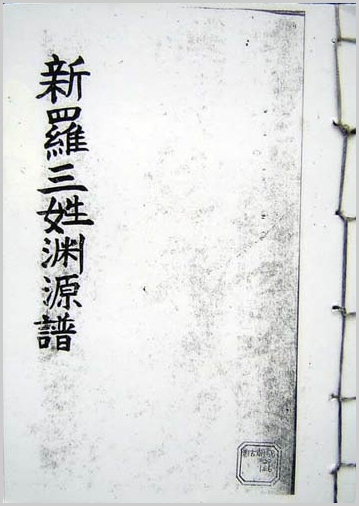 新羅三姓淵源譜